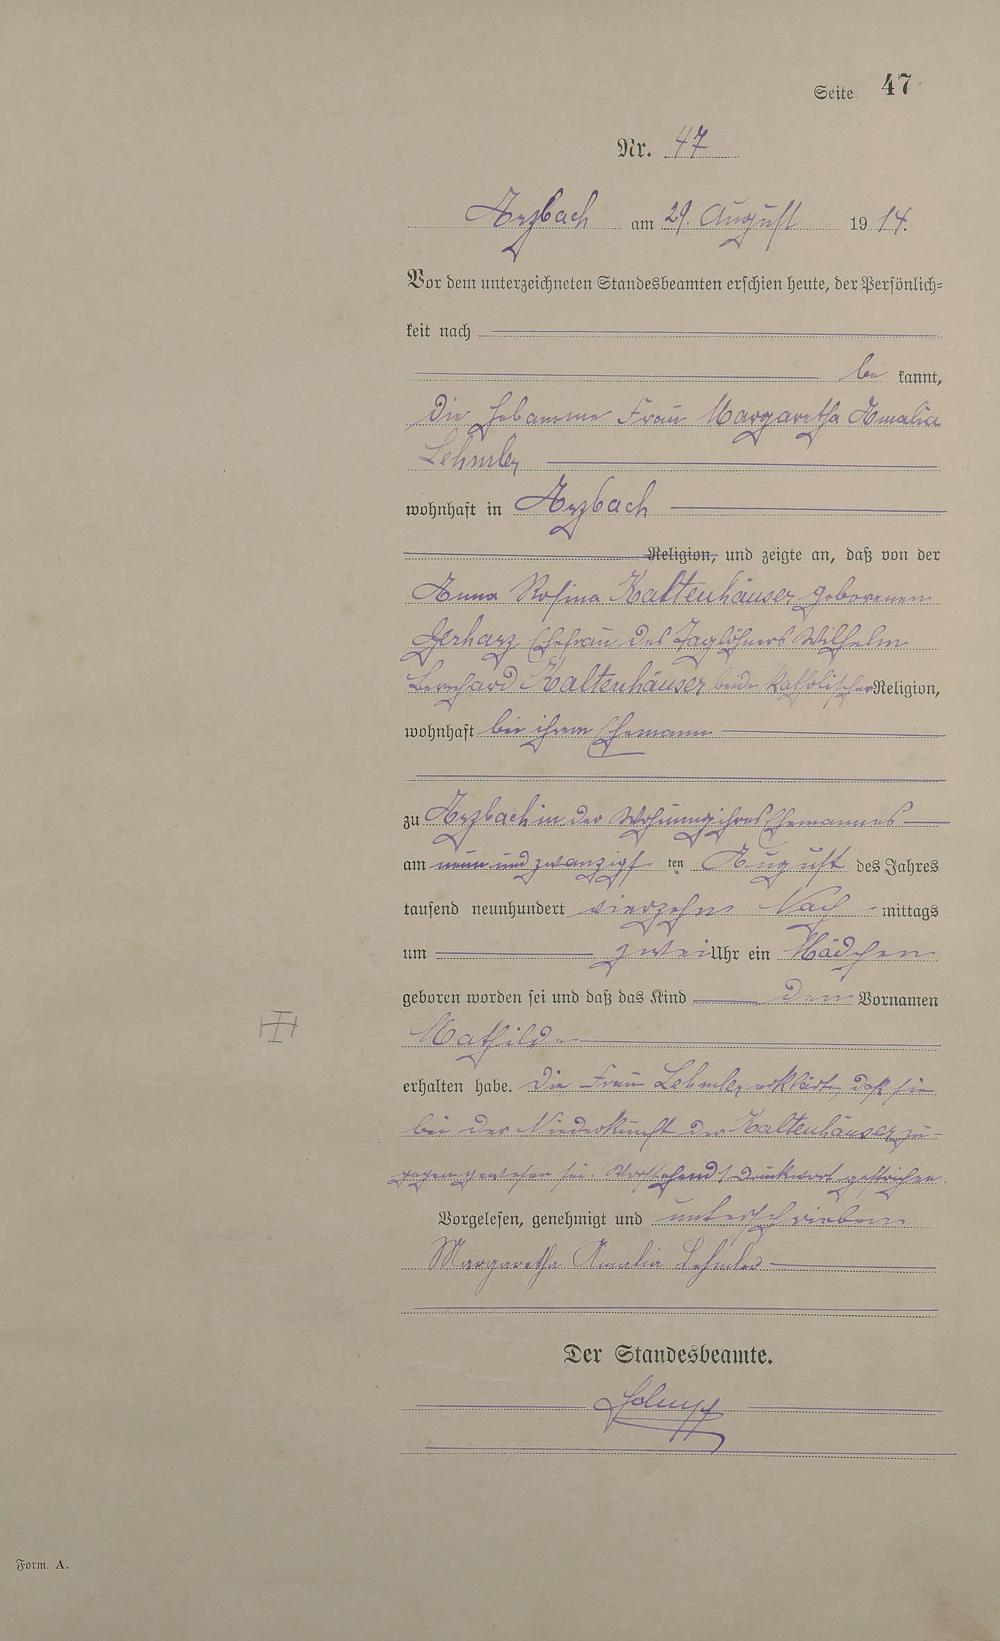 Seite 47
Nr. 47
Arzbach am 29. August 1914.
Vor dem unterzeichneten Standesbeamten erschien heute, der Persönlich=
keit nach
be kannt,
die Hebamme Frau Margaretha Amalia
Lehmler
wohnhaft in Arzbach
Religion, und zeigte an, daß von der
Anna Rosina Kaltenhäuser geborenen
Gerharz Ehefrau des Taglöhners Wilhelm
Bernhard Kaltenhäuser beide katholischer Religion,
wohnhaft bei ihrem Ehemann
zu Arzbach in der Wohnung ihres Ehemannes
am neun und zwanzigsten August des Jahres
tausend neunhundert vierzehn Nach mittags
um zwei Uhr ein Mädchen
geboren worden sei und daß das Kind den Vornamen
Mathilde
erhalten habe. Die Frau Lehmler erklärte, daß sie
bei der Niederkunft der Kaltenhäuser zu-
gegen gewesen sei. Vorstehend 1 Druckwort gestrichen.
Vorgelesen, genehmigt und unterschrieben
Margaretha Amalia Lehmler
Der Standesbeamte.
Form. A.